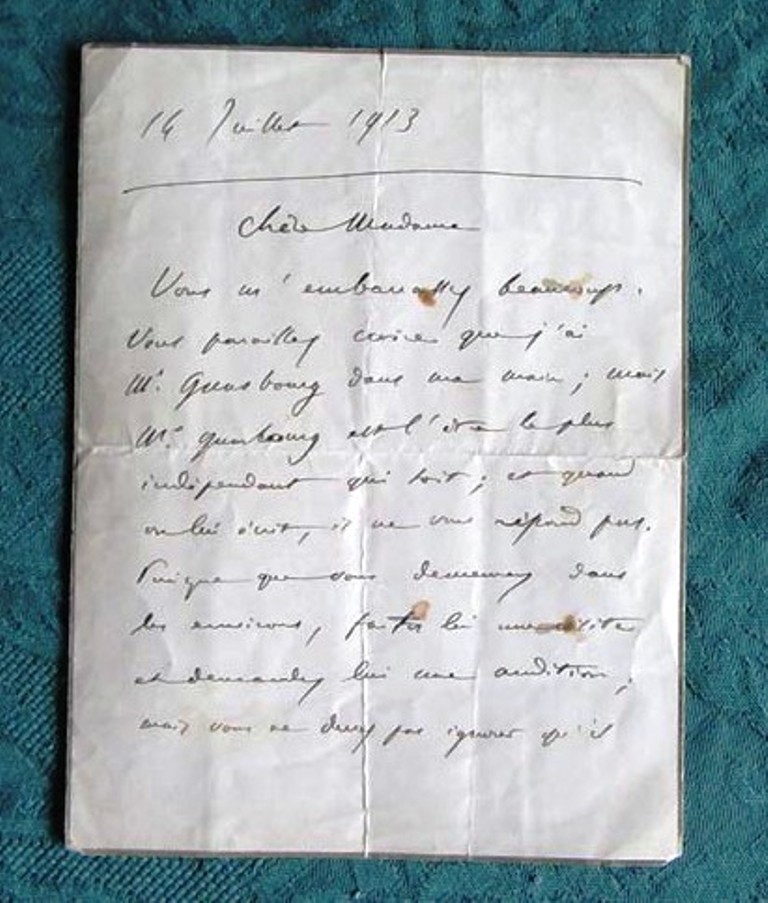 14 Juillet 1913
Chère Madame
Vous m'embarassez beaucoup.
Vous paraissez croire que j'ai
Mr. Gunsbourg dans ma main ; mais
Mr. Gunsbourg est l'être le plus
indépendant qui soit ; et quand
on lui écrit, il ne vous répond pas.
Puisque vous demeurez dans
les environs, faites lui une visite
et demandez lui une audition ;
mais vous ne devez pas ignorer qu'il